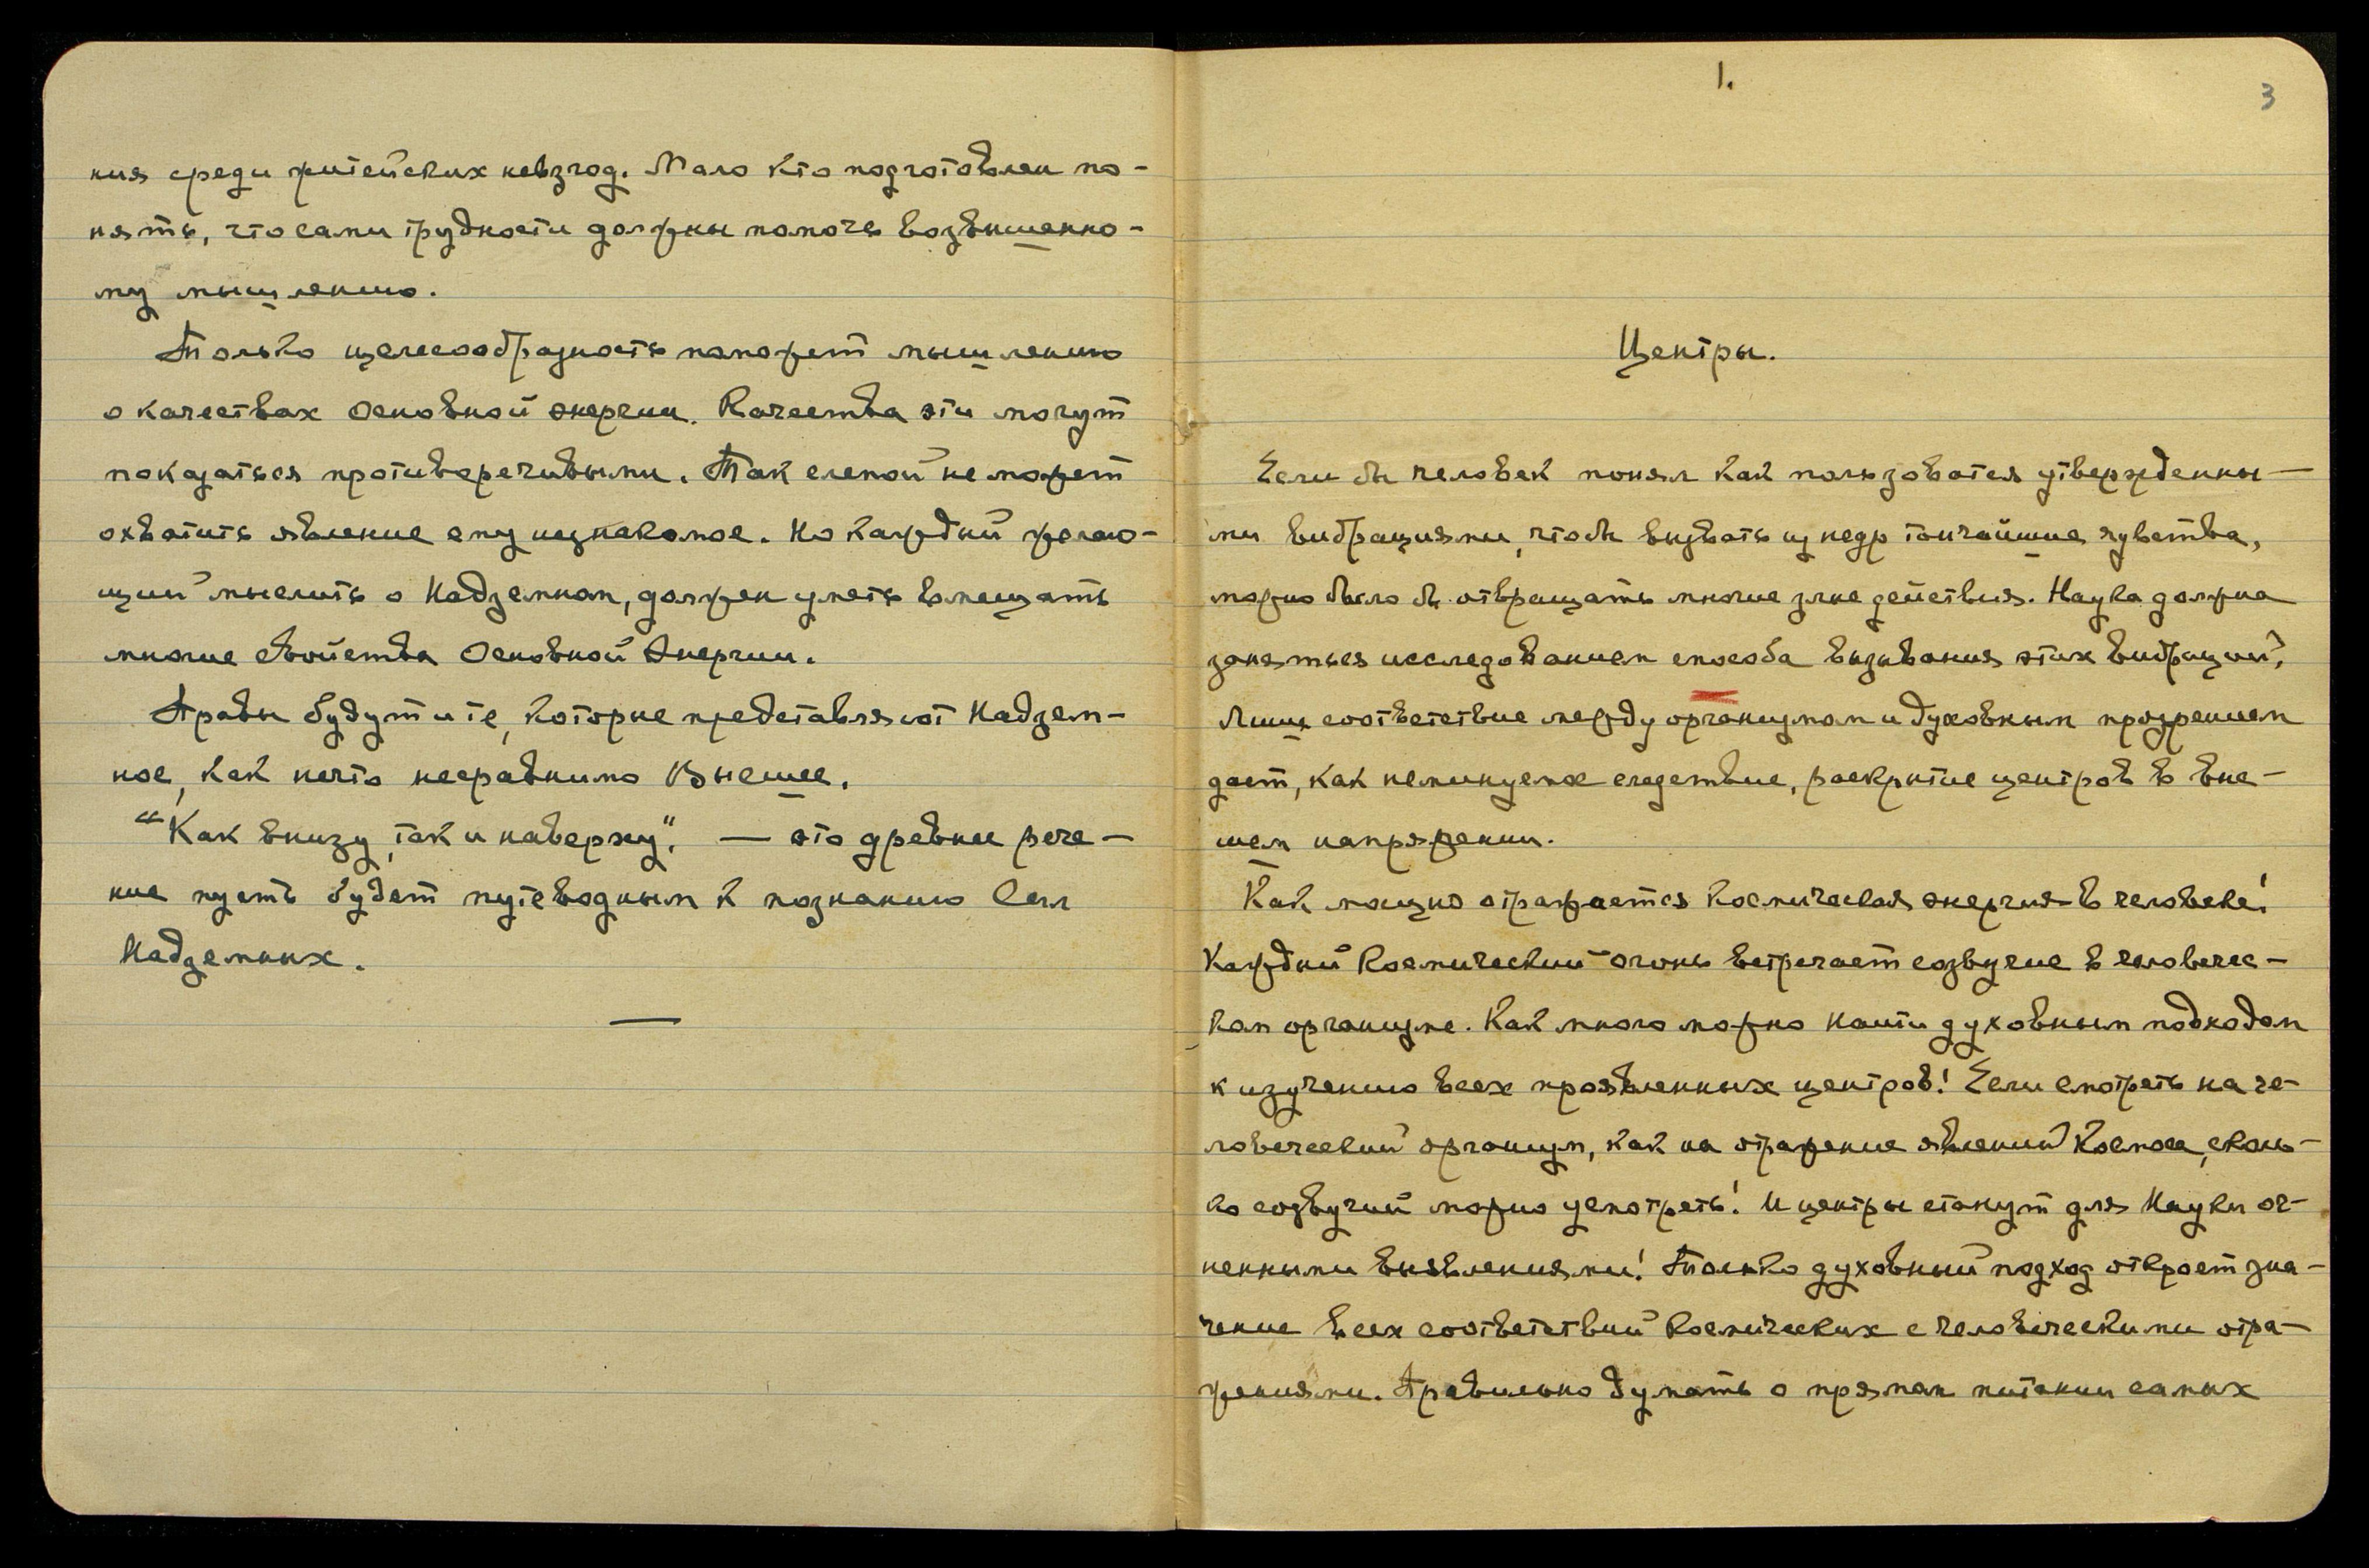 ния среди житейских невзгод. Мало кто подготовлен по-
нять, что сами трудности должны помочь возвышенно-
му мышлению.
Только целесообразность поможет мышлению
о качествах Основной энергии. Качества эти могут
показаться противоречивыми. Так слепой не может
охватить явление ему незнакомое. Но каждый желаю-
щий мыслить о Надземном, должен уметь вмещать
многие свойства Основной Энергии.
Правы будут и те, которые представляют Надзем-
ное, как нечто несравнимо Высшее.
"Как внизу, так и наверху", — это древнее рече-
ние пусть будет путеводным к познанию Сил
Надземных.
—
1.
3
Центры.
Если бы человек понял как пользоваться утвержденны-
ми вибрациями, чтобы вызвать из недр тончайшие чувства,
можно было бы отвращать многие злые действия. Наука должна
заняться исследованием способа вызывания этих вибраций.
Лишь соответствие между организмом и духовным прозрением
дает, как неминуемое следствие, раскрытие центров в выс-
шем напряжении.
Как мощно отражается космическая энергия в человеке!
Каждый Космический огонь встречает созвучие в человечес-
ком организме. Как много можно найти духовным подходом
к изучению всех проявленных центров! Если смотреть на че-
ловеческий организм, как на отражение явлений Космоса, сколь-
ко созвучий можно усмотреть! И центры станут для Науки ог-
ненными выявлениями! Только духовный подход откроет зна-
чение всех соответствий Космических с человеческими отра-
жениями. Правильно думать о прямом питании самих